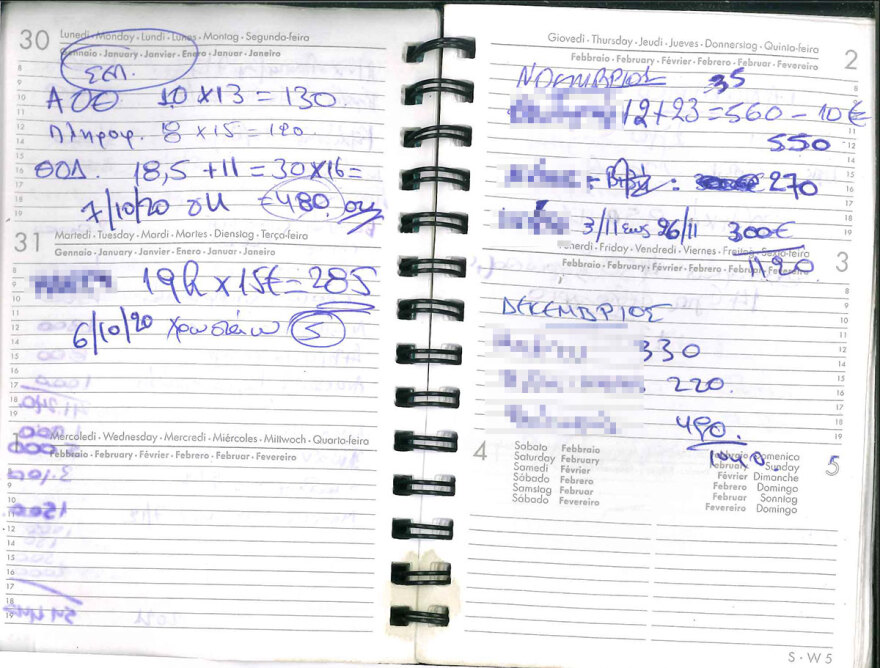 30 Lunedì · Monday · Lundi · Lunes · Montag · Segunda-feira
Gennaio · January · Janvier · Enero · Januar · Janeiro
ΣΕΠ.
ΑΟΘ 10 × 13 = 130
Πληροφ. 8 × 15 = 120.
ΘΟΔ. 18,5 + 11 = 30 × 16 =
7/10/20 €480
31 Martedì · Tuesday · Mardi · Martes · Dienstag · Terça-feira
Gennaio · January · Janvier · Enero · Januar · Janeiro
19h × 15€ = 285
6/10/20 Χρωστάω 5
1 Mercoledì · Wednesday · Mercredi · Miércoles · Mittwoch · Quarta-feira
Febbraio · February · Février · Febrero · Februar · Fevereiro
Giovedì · Thursday · Jeudi · Jueves · Donnerstag · Quinta-feira 2
Febbraio · February · Février · Febrero · Februar · Fevereiro
ΝΟΕΜΒΡΙΟΣ 35
12 + 23 = 560 - 10 €
550
270
3/11 εως 26/11 300€
Venerdì · Friday · Vendredi · Viernes · Freitag · Sexta-feira 3
Febbraio · February · Février · Febrero · Februar · Fevereiro
1120
ΔΕΚΕΜΒΡΙΟΣ
330
220.
490.
1040.
4 Sabato Febbraio
Saturday February
Samedi Février
Sábado Febrero
Samstag Februar
Sábado Fevereiro
Febbraio Domenica 5
February Sunday
Février Dimanche
Febrero Domingo
Februar Sonntag
Fevereiro Domingo
S · W 5